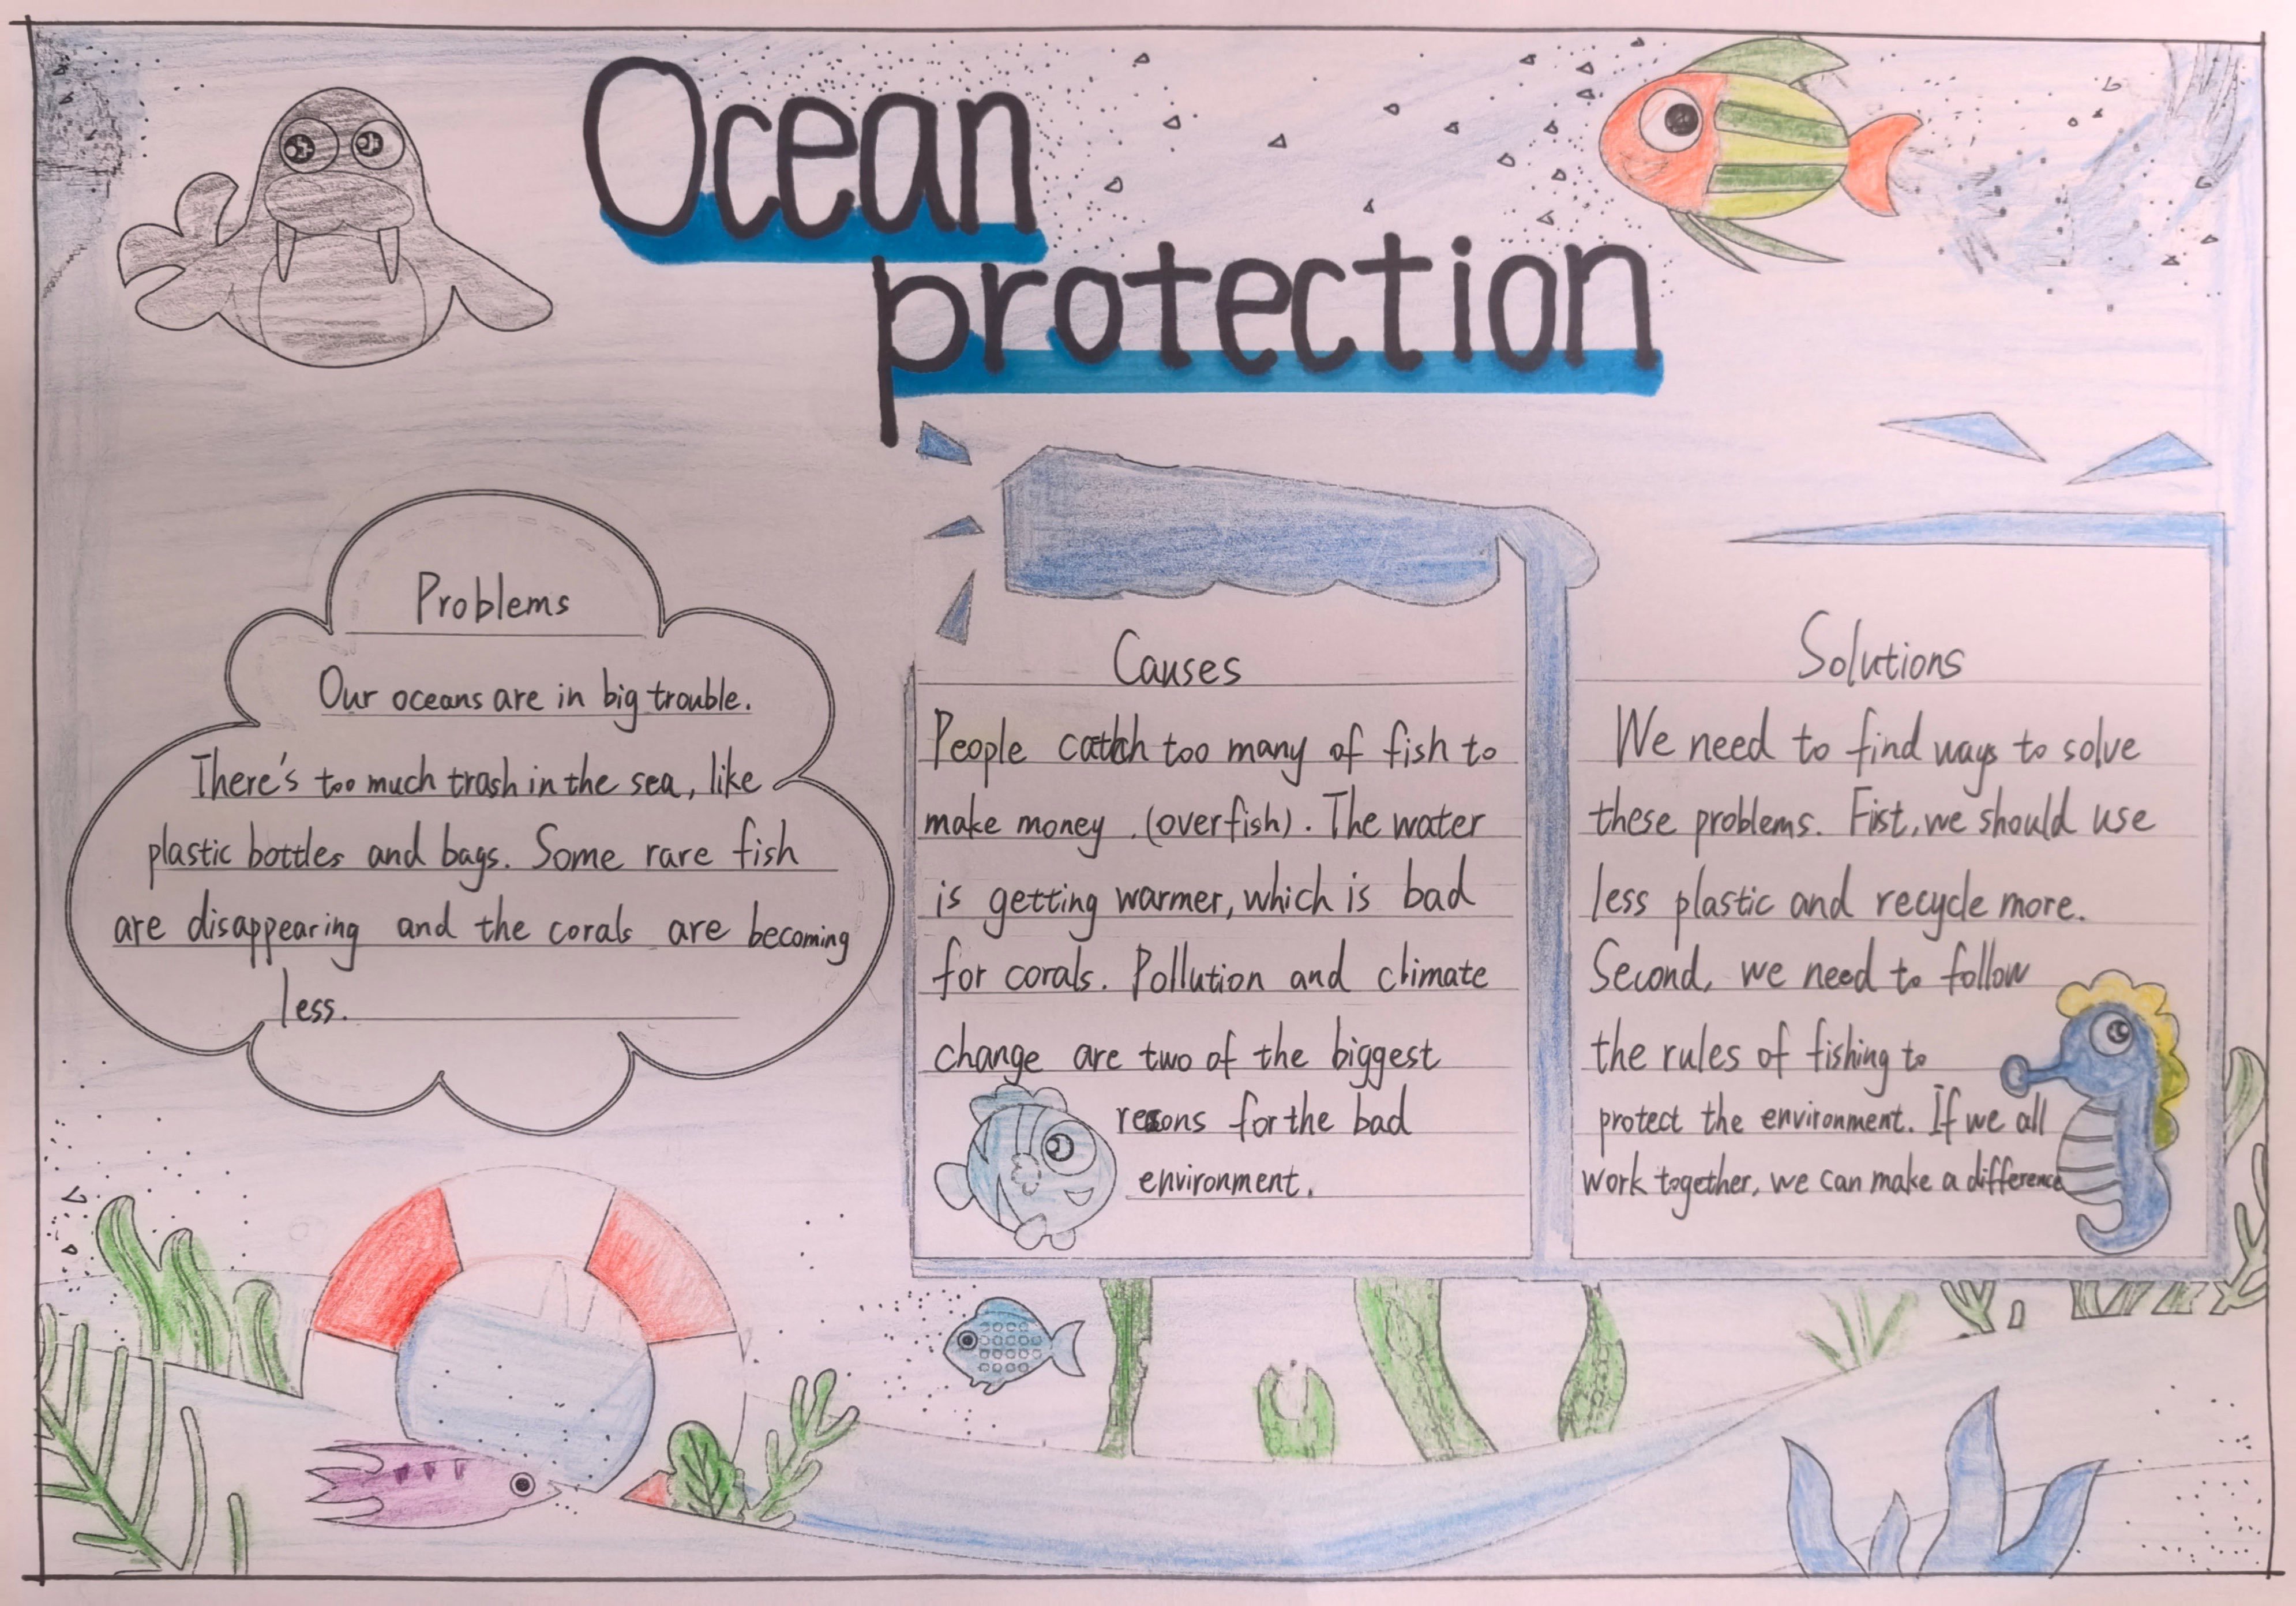 Ocean
protection
Problems
Our oceans are in big trouble.
There's too much trash in the sea, like
plastic bottles and bags. Some rare fish
are disappearing and the corals are becoming
less.
Causes
People catch too many of fish to
make money. (overfish). The water
is getting warmer, which is bad
for corals. Pollution and climate
change are two of the biggest
reasons for the bad
environment.
Solutions
We need to find ways to solve
these problems. Fist, we should use
less plastic and recycle more.
Second, we need to follow
the rules of fishing to
protect the environment. If we all
work together, we can make a difference